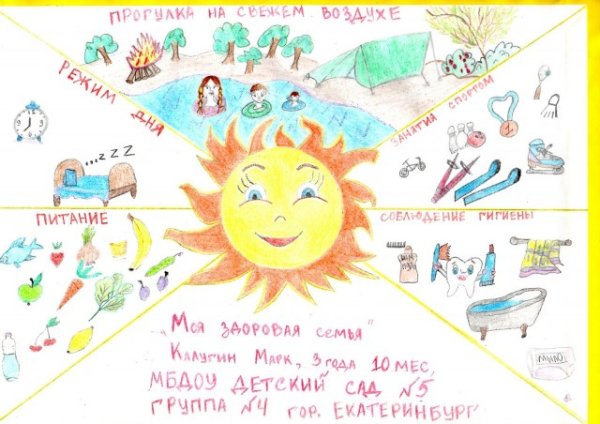 ПРОГУЛКА НА СВЕЖЕМ ВОЗДУХЕ
РЕЖИМ ДНЯ
ЗАНЯТИЯ СПОРТОМ
...zzz
1
ПИТАНИЕ
СОБЛЮДЕНИЕ ГИГИЕНЫ
МЫЛО
„Моя здоровая семья"
Калугин Марк, 3 года 10 мес,
МБДОУ ДЕТСКИЙ САД №5
ГРУППА №4 гор. ЕКАТЕРИНБУРГ